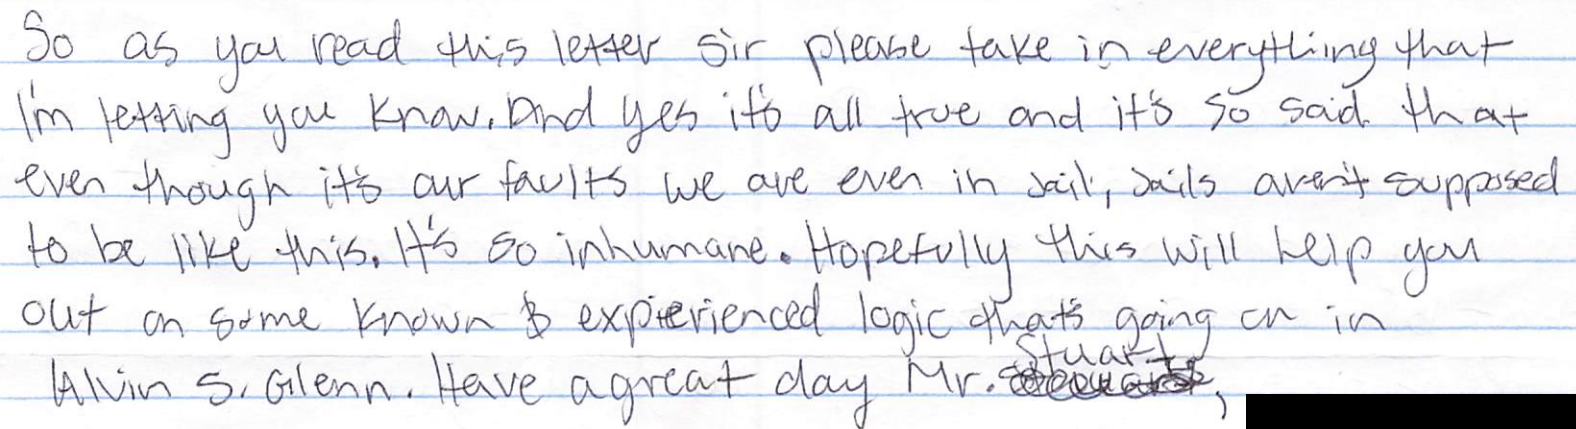 So as you read this letter sir please take in everything that
I'm letting you know. And yes it's all true and it's so said that
even though it's our faults we are even in jail, jails aren't supposed
to be like this. It's so inhumane. Hopefully this will help you
out on some known & expierienced logic thats going on in
Alvin S. Glenn. Have a great day Mr. Stuart,